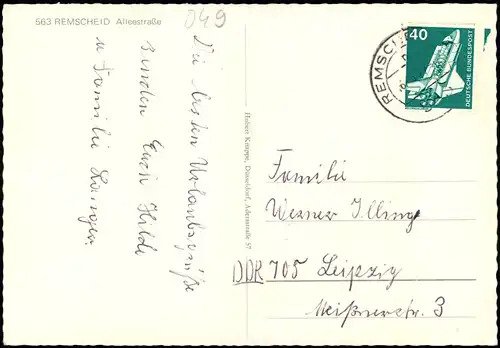 563 REMSCHEID Alleestraße
049
Die besten Urlaubsgrüße
senden Euch Hilde
u Familie Langen
Hubert Knuppe, Düsseldorf, Adersstraße 57
REMSCH
40
DEUTSCHE BUNDESPOST
Familie
Werner Illing
DDR 705 Leipzig
Meißnerstr. 3